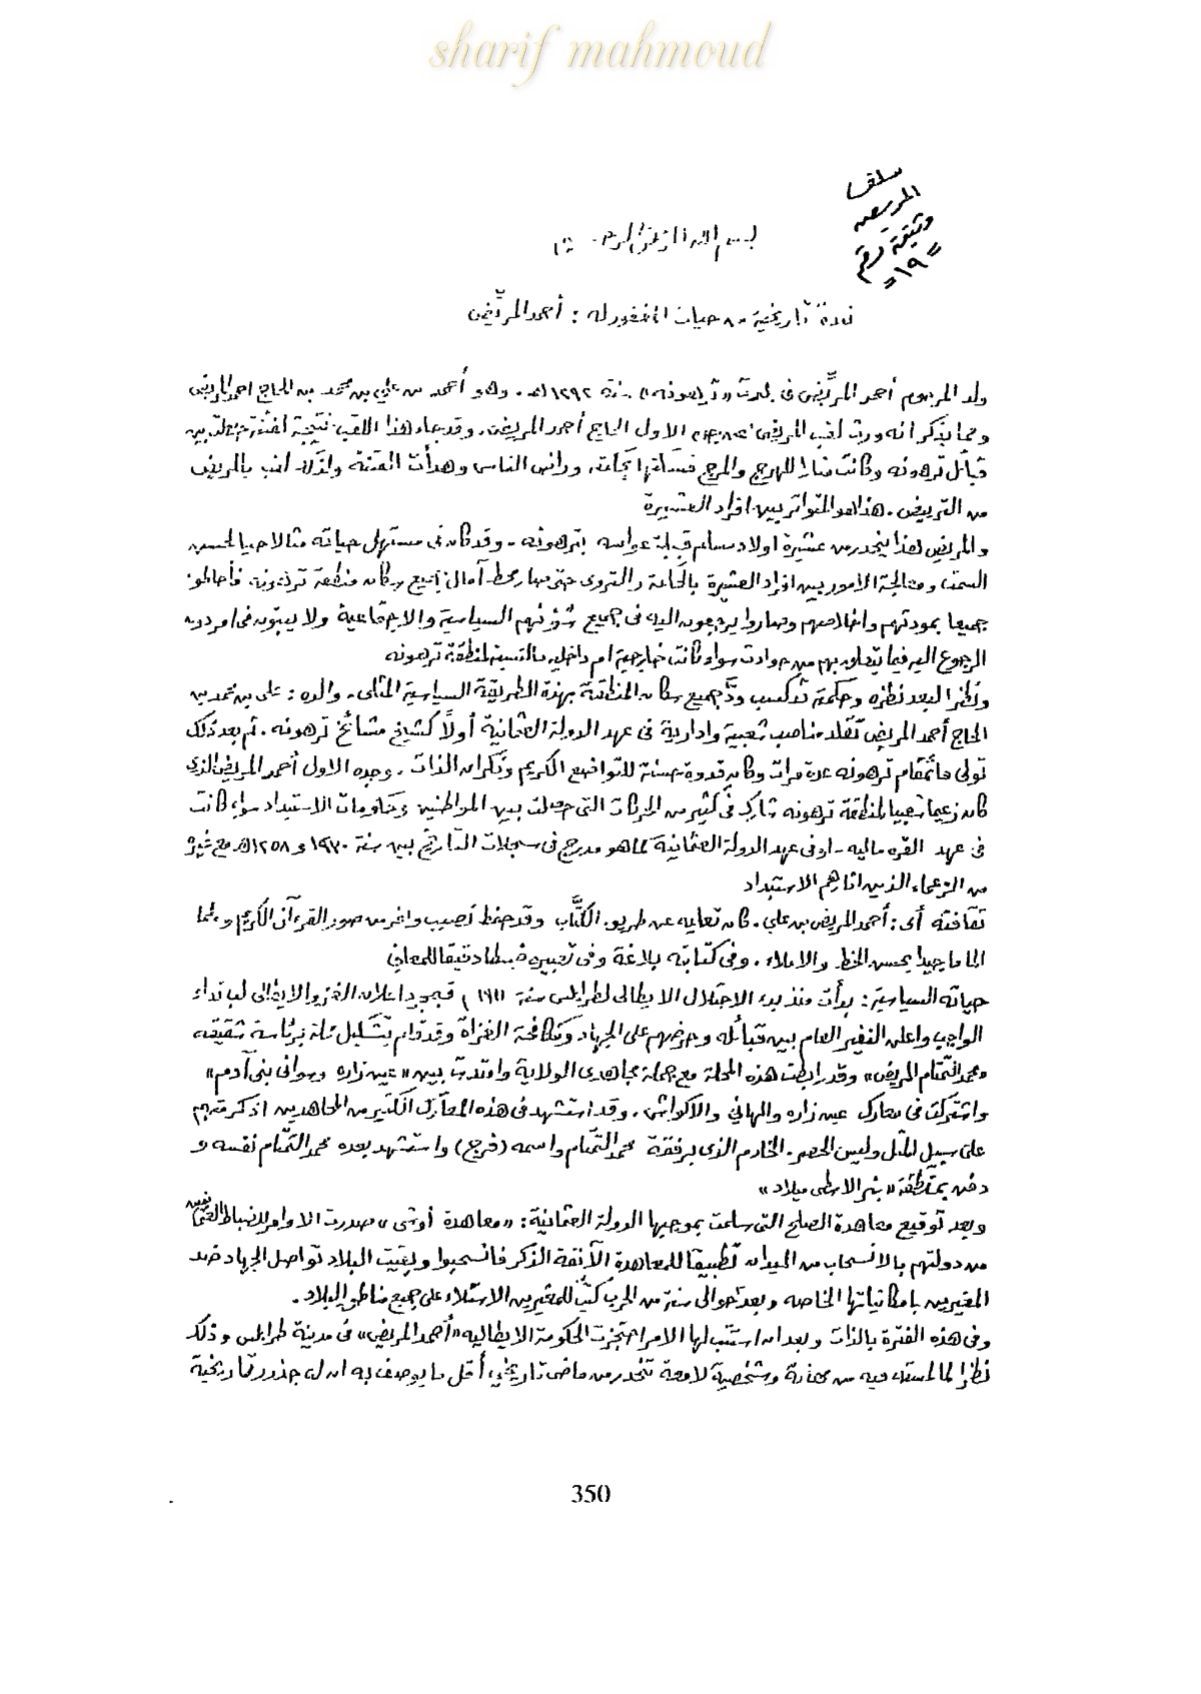 sharif mahmoud
المريض
وثيقة رقم
"١٩"
بسم الله الرحمن الرحيم
نبذة تاريخية من حيات المغفور له : أحمد المريّض
ولد المرحوم أحمد المريّض فى بلدت «ترهونه» سنة ١٢٩٢هـ. وهو أحمد بن علي بن محمد بن الحاج احمد المريض
ومما يذكر انه ورث لقب المريض الاول الحاج أحمد المريض. وقد جاء هذا اللقب نتيجة لفتنة حصلت بين
قبائل ترهونه وكانت مثارا للهرج والمرج وراض الناس وهدأت الفتنة ولذلك لقب بالمريض
من الترييض. هذا هو المتواتر بين افراد العشيرة
والمريض هذا ينحدر من عشيرة اولاد مسلم قبيلة عواسه بترهونه. وقد كان فى مستهل حياته مثالا حيا لحسن
السمت ومعالجة الامور بين افراد العشيرة بالحكمة والتروى حتى صار محط آمال جميع سكان منطقة ترهونه فأحاطوه
جميعا بمودتهم واخلاصهم وصاروا يرجعون اليه فى جميع شؤنهم السياسية والاجتماعية ولا يبتون فى امر دون
الرجوع اليه فيما يتعلق بهم من حوادث سواء كانت خارجية ام داخليه بالنسبة لمنطقة ترهونه
ونظرا لبعد نظره وحكمة تدكسب ودّ جميع سكان المنطقة بهذة الطريقة السياسية المثلى. والده : على بن محمد بن
الحاج أحمد المريض تقلد مناصب شعبية وادارية فى عهد الدولة العثمانية أولاً كشيخ مشائخ ترهونه. ثم بعد ذلك
تولى قائمقام ترهونه عدة مرات وكان قدوة حسنة للتواضع الكريم ونكران الذات. وجده الاول أحمد المريض الذى
كان زعيما شعبيا لمنطقة ترهونه شارك فى كثير من الحركات التى حصلت بين المواطنين وحكومات الاستبداد سواء كانت
فى عهد القره ماليه - او فى عهد الدولة العثمانية كما هو مدرج فى سجلات التاريخ بين سنة ١٩٣٠ و ١٢٥٨هـ مع غيره
من الزعماء الذين اثارهم الاستبداد
ثقافته أى : أحمد المريض بن علي. كان تعليمه عن طريق الكتّاب وقد حفظ نصيب وافر من صور القرءآن الكريم وملما
الماما جيدا بحسن الخط والاملاء. وفى كتابته بلاغة وفى تعبيره ضبطا دقيقا للمعاني
حياته السياسية : بدأت منذ بدء الاحتلال الايطالى لطرابلس سنة ١٩١١م فبمجرد اعلان الغزو الايطالى لبا نداء
الواجب واعلن النفير العام بين قبائله وحرضهم على الجهاد ومكافحة الغزاة وقد قام بتشكيل محلة برئاسة شقيقه
«محمد القمقام المريض» وقد رابطت هذه المحلة مع جملة مجاهدى الولاية وامتدت بين «عين زاره وسوانى بنى آدم»
واشتركت فى معارك عين زاره والهاني والاكواش. وقد استشهد فى هذه المعارك الكثير من المجاهدين اذكر منهم
على سبيل المثل وليس الحصر. الخادم الذى برفقة محمد القمقام واسمه (فرج) واستشهد بعده محمد القمقام نفسه و
دفن بمنطقة «بئر الاسطى ميلاد»
وبعد توقيع معاهدة الصلح التى سلمت بموجبها الدولة العثمانية : «معاهدة أوشى» صدرت الاوامر للضباط العثمانيين
من دولتهم بالانسحاب من الميدان تطبيقا للمعاهدة الآنفة الذكر فانسحبوا وبقيت البلاد تواصل الجهاد ضد
المغيرين بامكانياتها الخاصه وبعد حوالى سنة من الحرب كتب للمغيرين الاستلاء على جميع مناطق البلاد.
وفى هذه الفترة بالذات وبعد ان استتب لها الامر احتجزت الحكومة الايطاليه «أحمد المريض» فى مدينة طرابلس وذلك
نظرا لما لمسته فيه من وشخصية لامعة تنحدر من ماضى تاريخي أقل ما يوصف به ان له جذور تاريخية
350